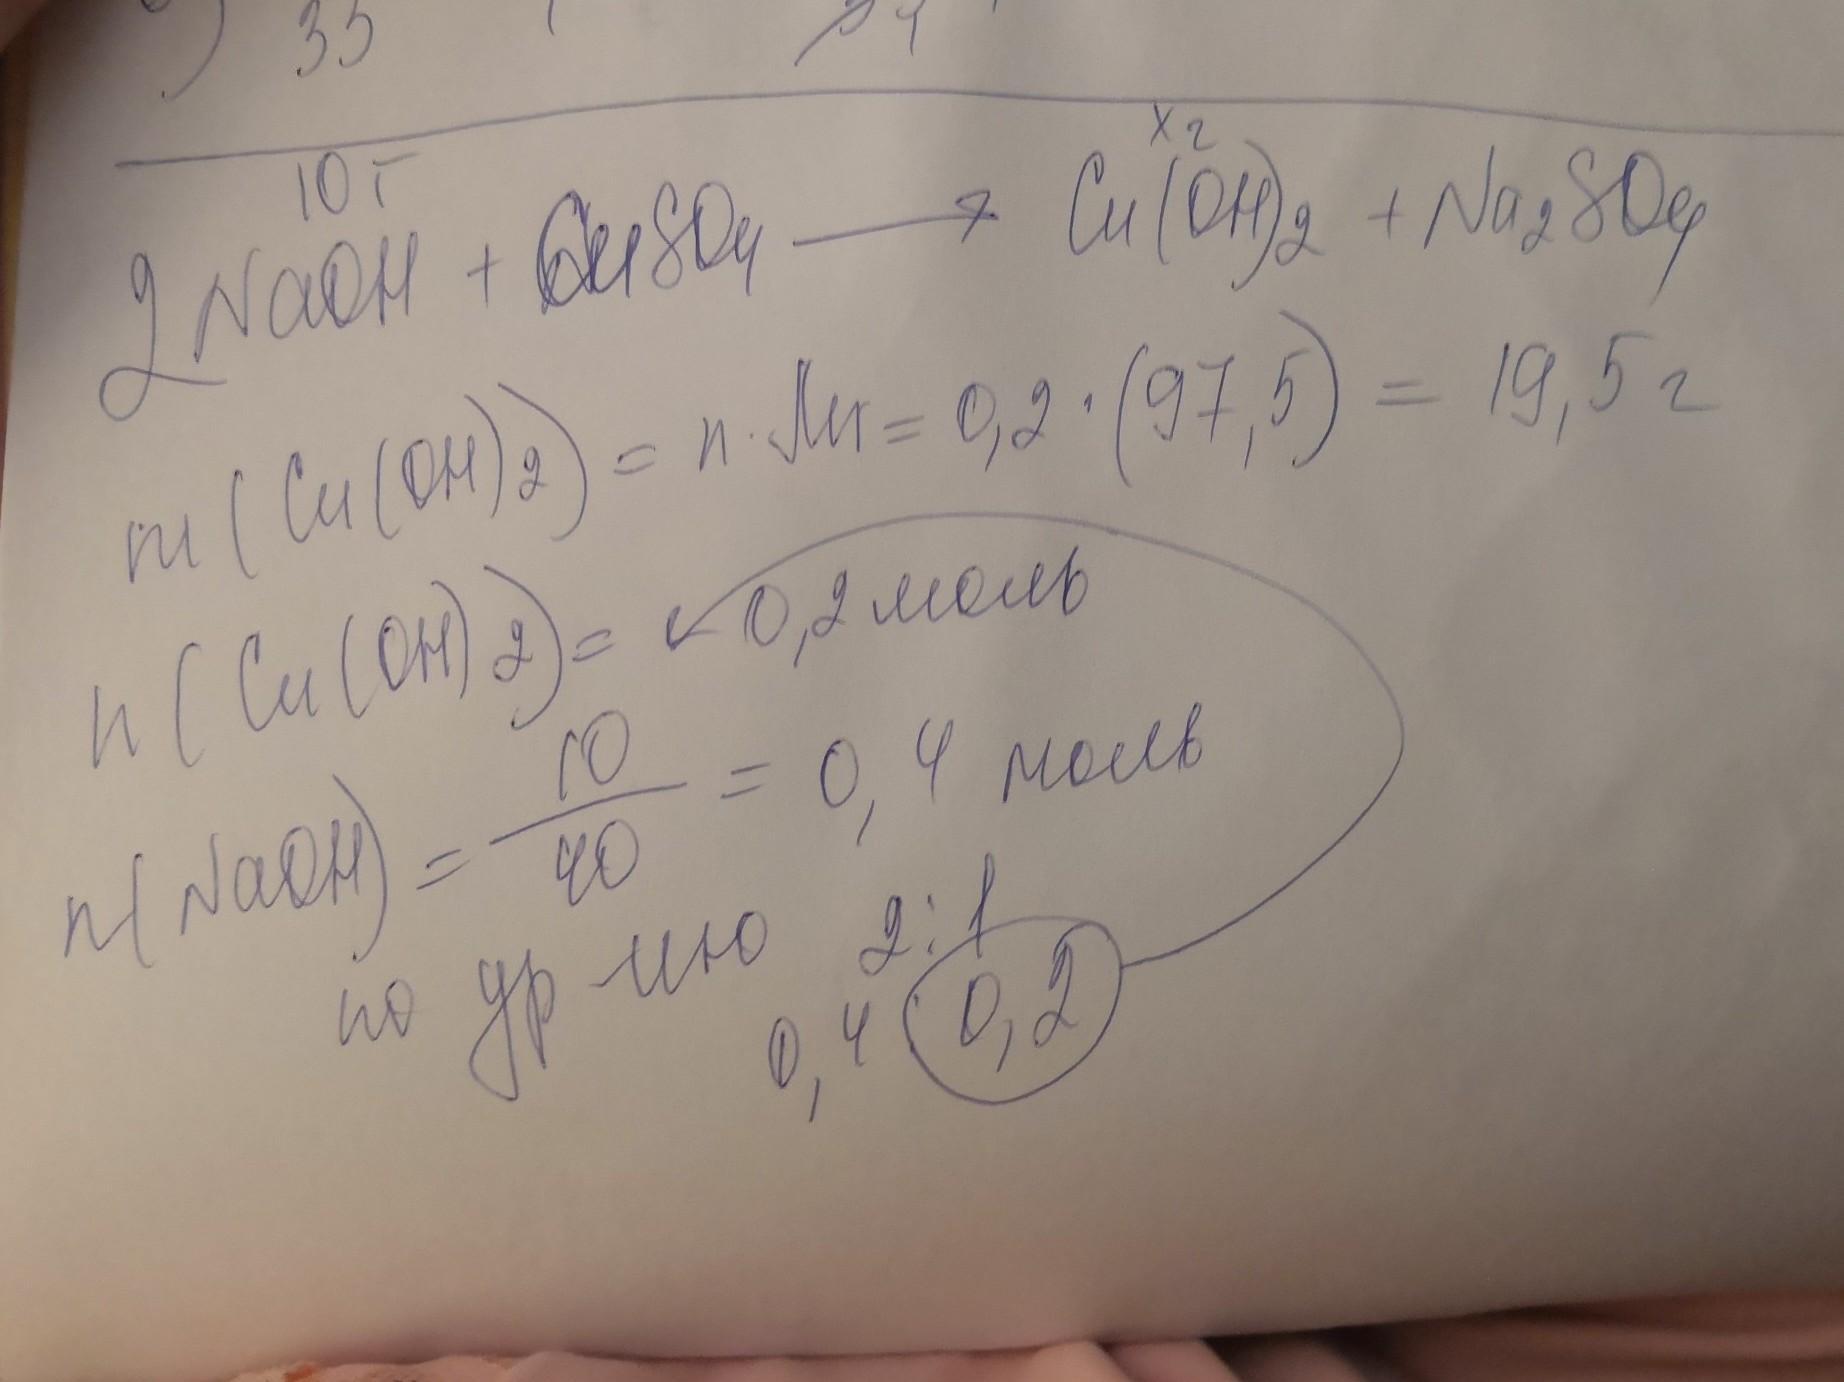 ) 35
10 г x г
2NaOH + CuSO4 → Cu(OH)2 + Na2SO4
m(Cu(OH)2) = n · Mr = 0,2 · (97,5) = 19,5 г
n(Cu(OH)2) = 0,2 моль
n(NaOH) = 10/40 = 0,4 моль
по ур-ию 2:1
0,4 : 0,2